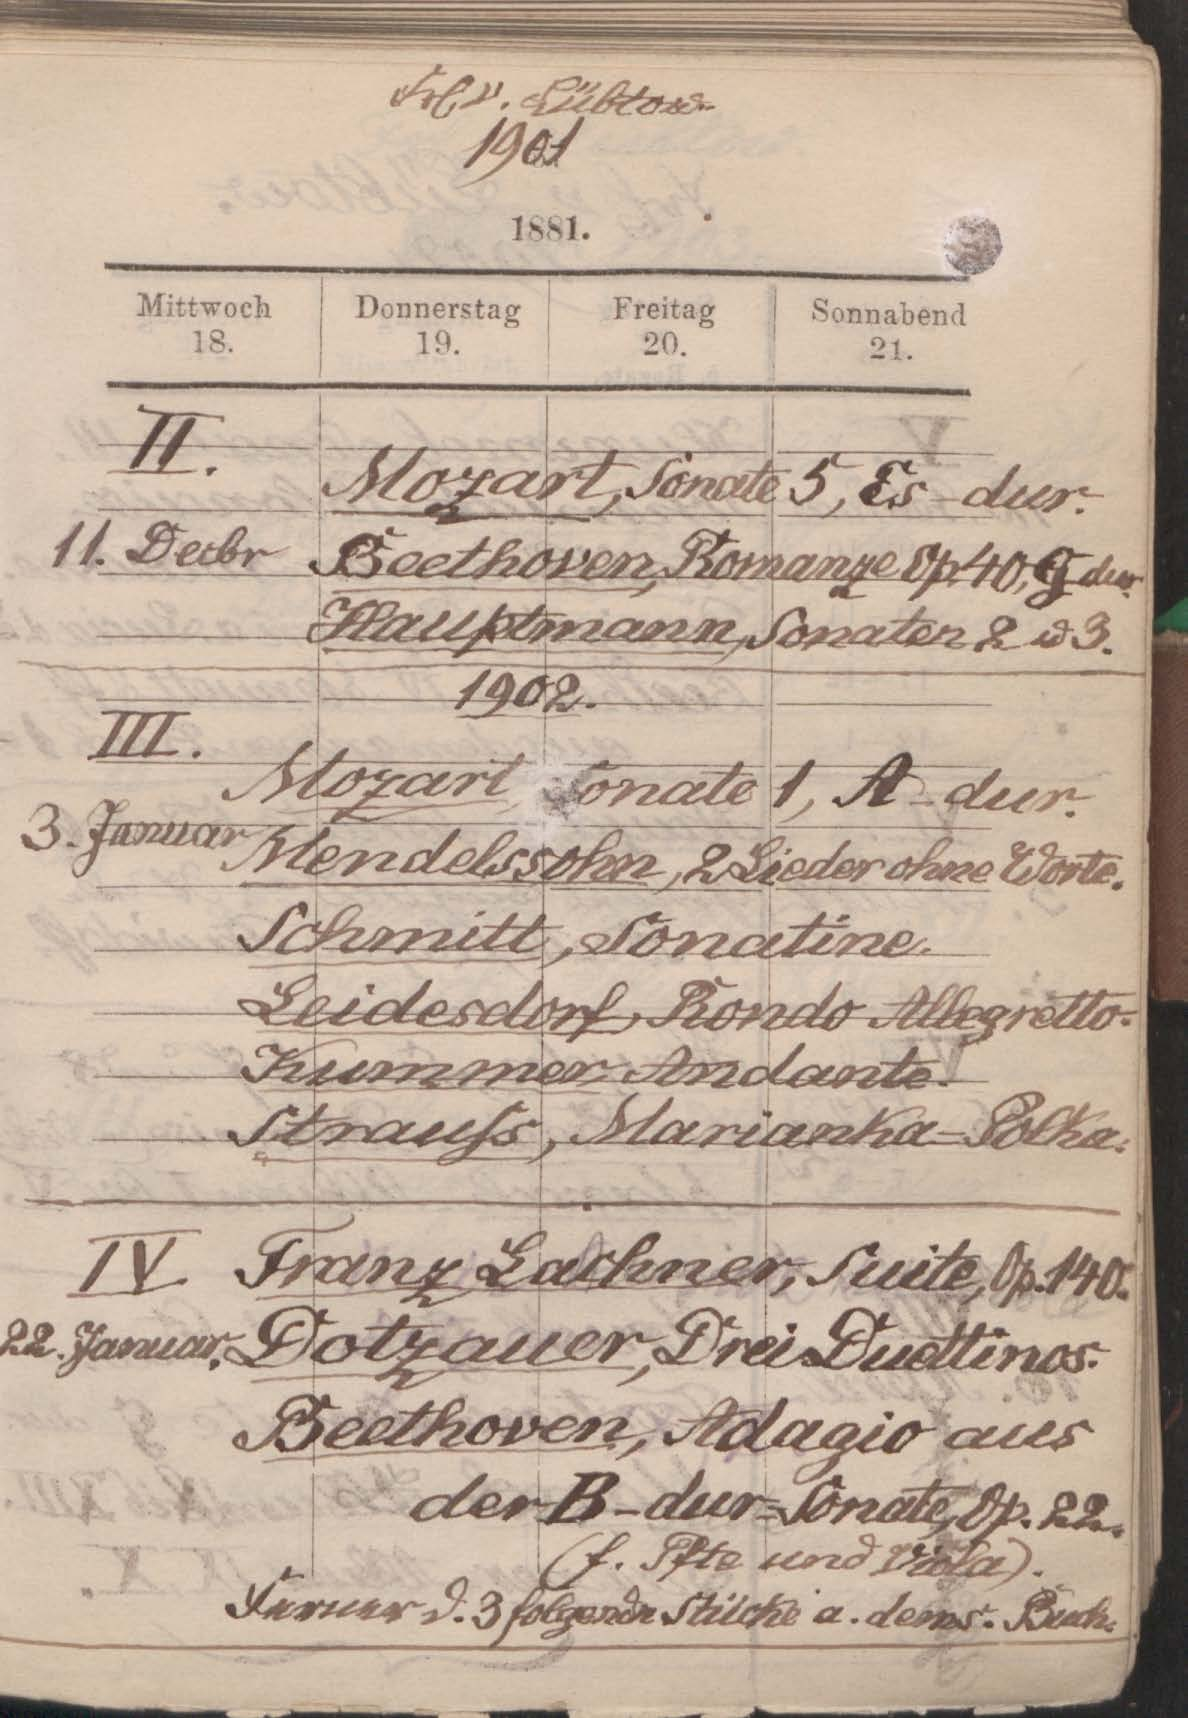 Frl v. Lübtow
1901
1881.
Mittwoch Donnerstag Freitag Sonnabend
18. 19. 20. 21.
II.
Mozart, Sonate 5, Es-dur.
11. Decbr Beethoven, Romanze Op. 40, G dur.
Hauptmann, Sonaten 2 u 3.
1902.
III.
Mozart, Sonate 1, A-dur.
3. Januar Mendelssohn, 2 Lieder ohne Worte.
Schmitt, Sonatine.
Leidesdorf, Rondo Allegretto.
Kummer Andante.
Strauſs, Marianka-Polka.
IV Franz Lachner, Suite, Op. 140.
22. Januar. Dotzauer, Drei Duettinos.
Beethoven, Adagio aus
der B-dur-Sonate, Op. 22.
(f. Pfte und Viola).
Ferner d. 3 folgenden Stücke a. dems. Buch.